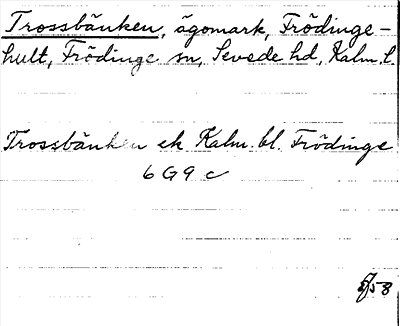 Trossbänken, ägomark, Frödinge-
hult, Frödinge sn, Sevede hd, Kalm. l.
Trossbänken ek Kalm. bl. Frödinge
6 G 9 c
58